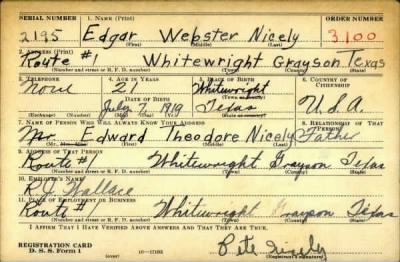 SERIAL NUMBER 1. Name (Print) ORDER NUMBER
2195 Edgar Webster Nicely 3,100
(First) (Middle) (Last)
2. Address (Print)
Route #1 Whitewright Grayson Texas
(Number and street or R. F. D. number) (Town) (County) (State)
3. Telephone 4. Age in Years 5. Place of Birth 6. Country of Citizenship
None 21 Whitewright
Date of Birth (Town or county)
July 7 1919 Texas U.S.A.
(Exchange) (No.) (Mo.) (Day) (Yr.) (State or country)
7. Name of Person Who Will Always Know Your Address 8. Relationship of That Person
Mr. Edward Theodore Nicely Father
(Mr., Mrs., Miss) (First) (Middle) (Last)
9. Address of That Person
Route #1 Whitewright Grayson Texas
(Number and street or R. F. D. number) (Town) (County) (State)
10. Employer's Name
R.J. Wallace
11. Place of Employment or Business
Route #1 Whitewright Grayson Texas
(Number and street or R. F. D. number) (Town) (County) (State)
I Affirm That I Have Verified Above Answers and That They Are True.
REGISTRATION CARD
D. S. S. Form 1 (over) Pete Nicely
(Registrant's signature)